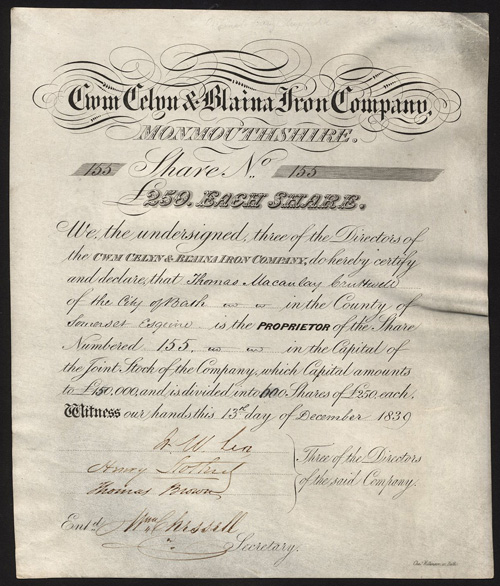 Cwm Celyn & Blaina Iron Company,
MONMOUTHSHIRE.
155 Share No. 155
£250. EACH SHARE.
We, the undersigned, three of the Directors of
the CWM CELYN & BLAINA IRON COMPANY, do hereby certify
and declare, that Thomas Macaulay Cruttwell
of the City of Bath in the County of
Somerset Esquire is the PROPRIETOR of the Share
Numbered 155. in the Capital of
the Joint Stock of the Company, which Capital amounts
to £150,000, and is divided into 600 Shares of £250, each.
Witness our hands this 13th day of December 1839
Henry
Thomas Brown
Three of the Directors
of the said Company.
Entd. Wm Chessell
Secretary.